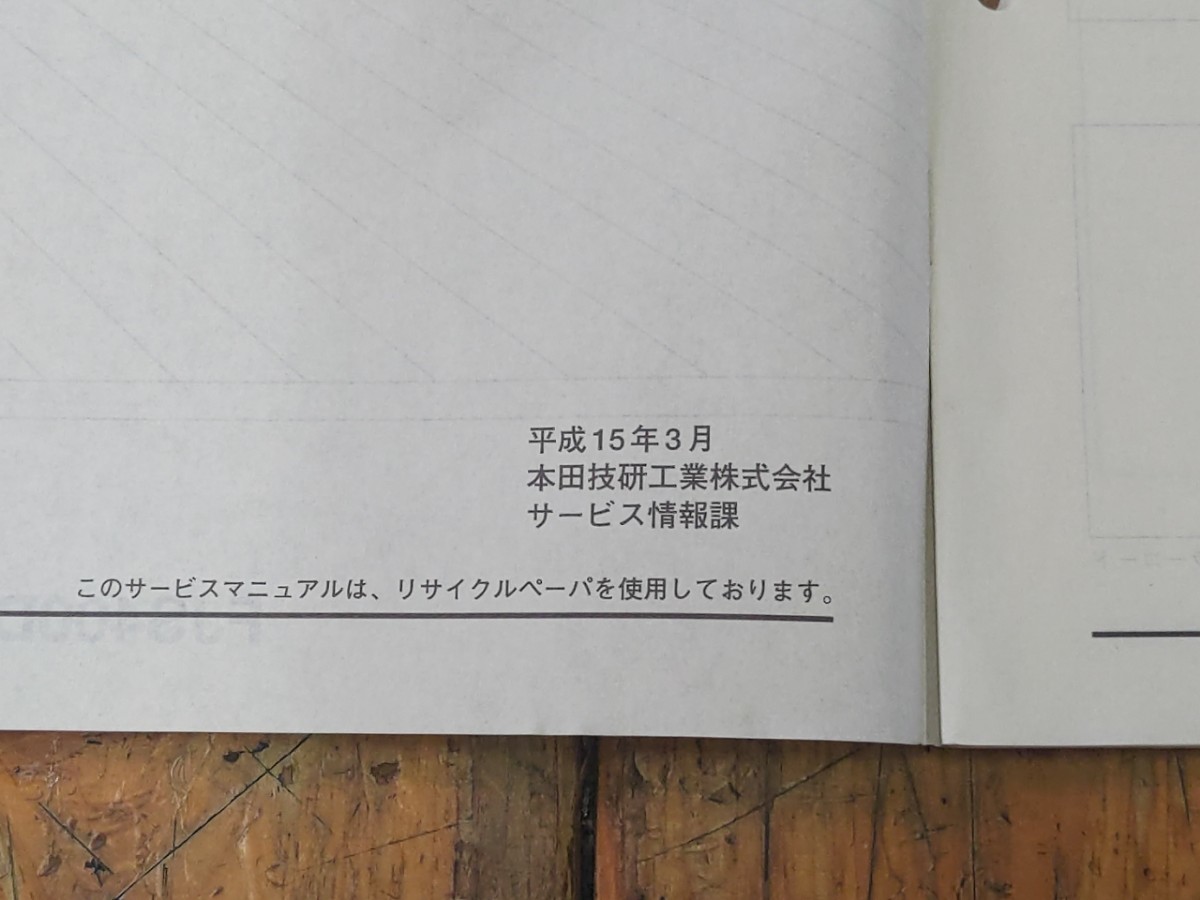 平成15年3月
本田技研工業株式会社
サービス情報課
このサービスマニュアルは、リサイクルペーパを使用しております。